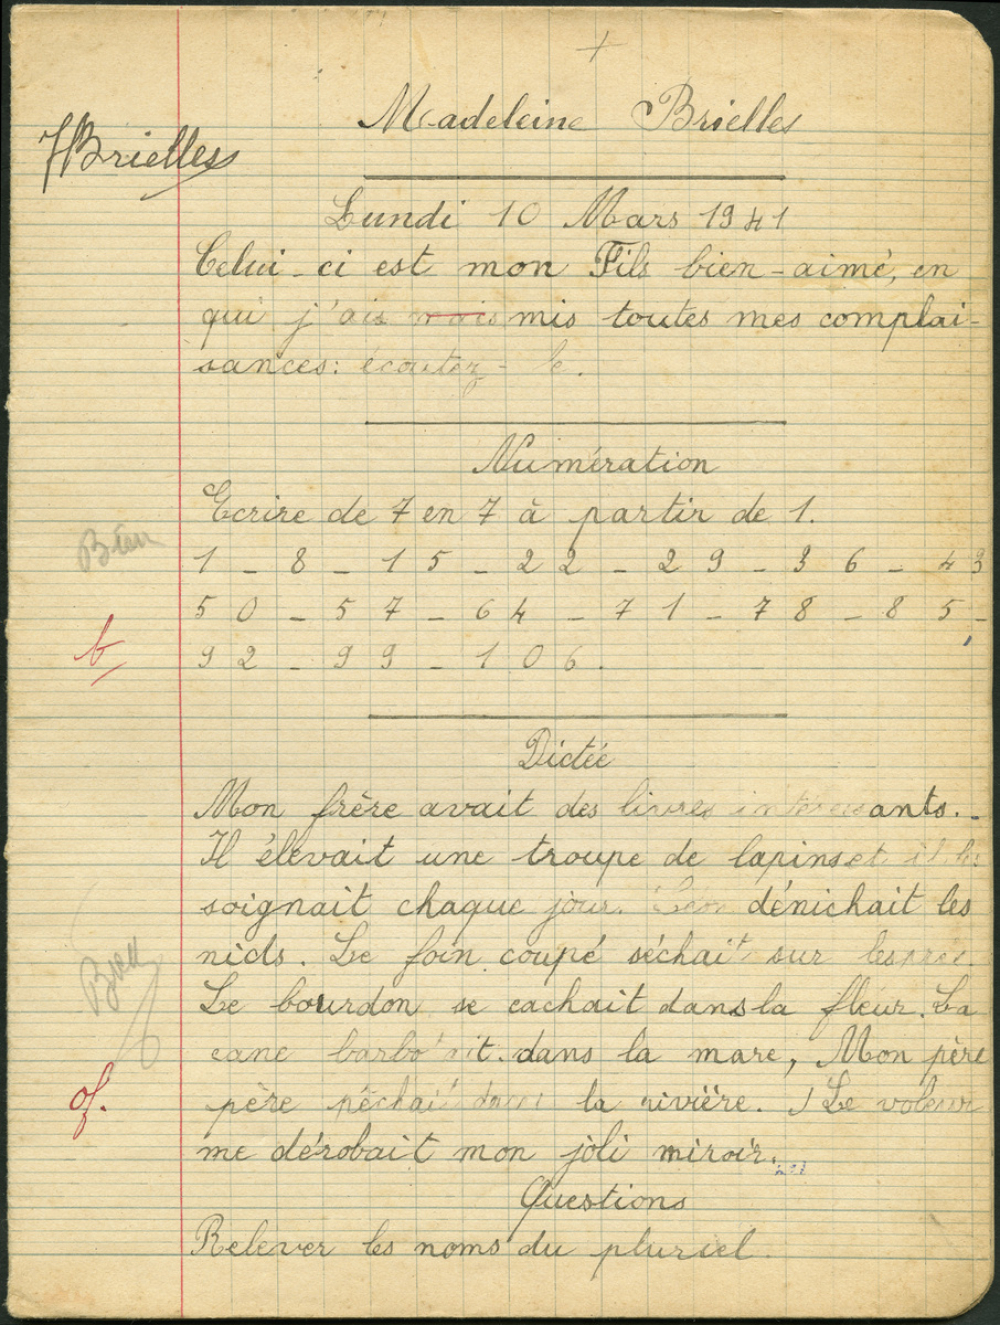 Madeleine Brielles
JBrielles
Lundi 10 Mars 1941
Celui-ci est mon Fils bien-aimé, en
qui j'ais mis toutes mes complai-
sances: écoutez-le.
Numération
Ecrire de 7 en 7 à partir de 1.
Bien
1 - 8 - 15 - 22 - 29 - 36 - 43
50 - 57 - 64 - 71 - 78 - 85 -
92 - 99 - 106.
b
Dictée
Mon frère avait des livres intéressants.
Il élevait une troupe de lapins et il les
soignait chaque jour. Léon dénichait les
nids. Le foin coupé séchait sur les prés.
Bien
Le bourdon se cachait dans la fleur. La
cane barbotait dans la mare, Mon père
père pêchait dans la rivière. Le voleur
of.
me dérobait mon joli miroir.
Questions
Relever les noms du pluriel.